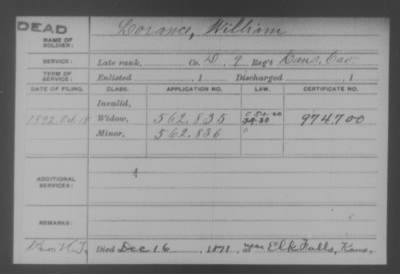 DEAD
NAME OF SOLDIER: Lorance, William
SERVICE: Late rank, Co. D, 9 Reg't Kans. Cav.
TERM OF SERVICE: Enlisted , 1 Discharged , 1
DATE OF FILING. CLASS. APPLICATION NO. LAW. CERTIFICATE NO.
Invalid,
Widow, 562.835 974.700
Minor, 562.836
ADDITIONAL SERVICES:
REMARKS:
Died Dec 16, 1871, Elk Falls, Kans.